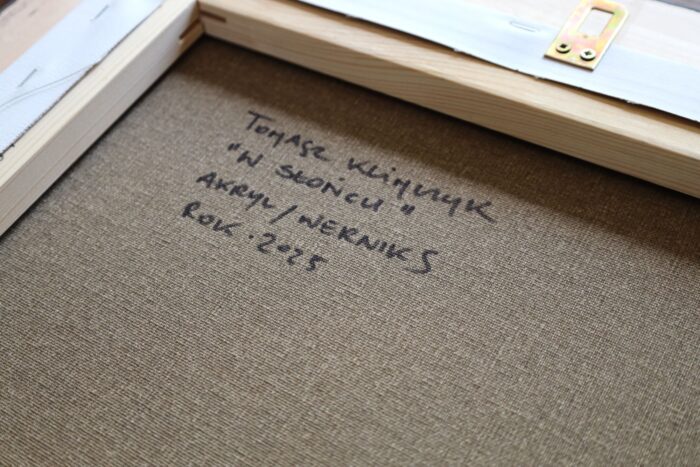 TOMASZ KLIMCZYK
"W SŁOŃCU"
AKRYL/WERNIKS
ROK. 2025